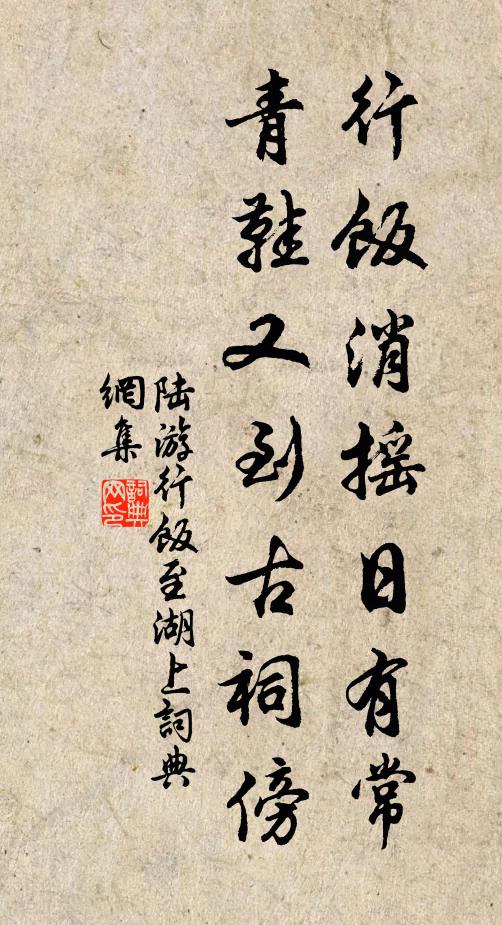 行飯消摇日有常
青鞋又到古祠傍
陆游行飯至湖上詞典
網集
詞典网印